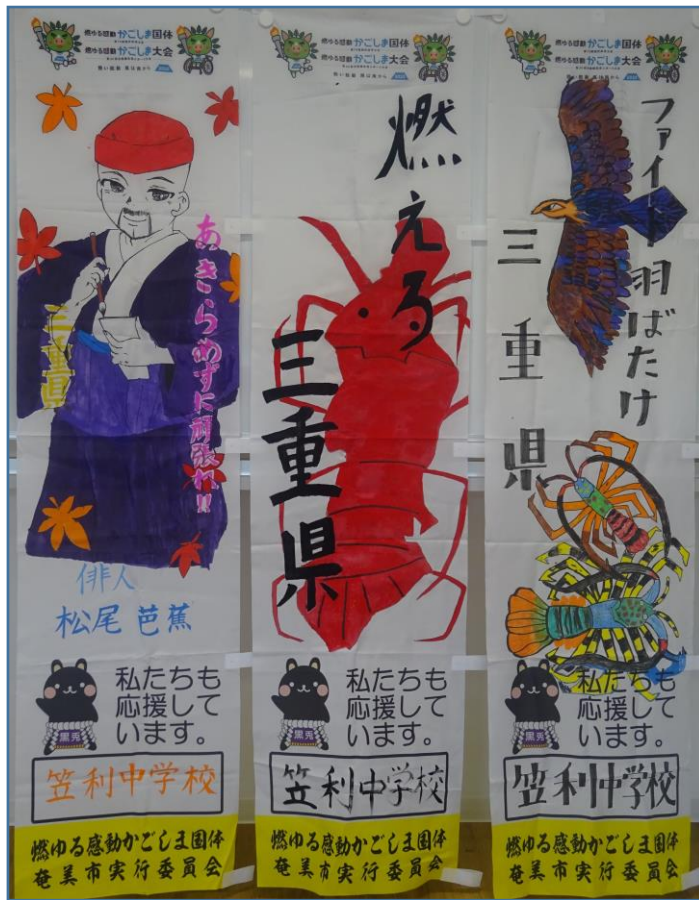 燃ゆる感動かごしま国体
燃ゆる感動かごしま大会
三重県
あきらめずに頑張れ!!
俳人
松尾 芭蕉
私たちも
応援して
います。
黒秀
笠利中学校
燃ゆる感動かごしま国体
奄美市実行委員会
燃ゆる感動かごしま国体
燃ゆる感動かごしま大会
燃える
三重県
私たちも
応援して
います。
黒秀
笠利中学校
燃ゆる感動かごしま国体
奄美市実行委員会
燃ゆる感動かごしま国体
燃ゆる感動かごしま大会
ファイト羽ばたけ
三重県
私たちも
応援して
います。
黒秀
笠利中学校
燃ゆる感動かごしま国体
奄美市実行委員会